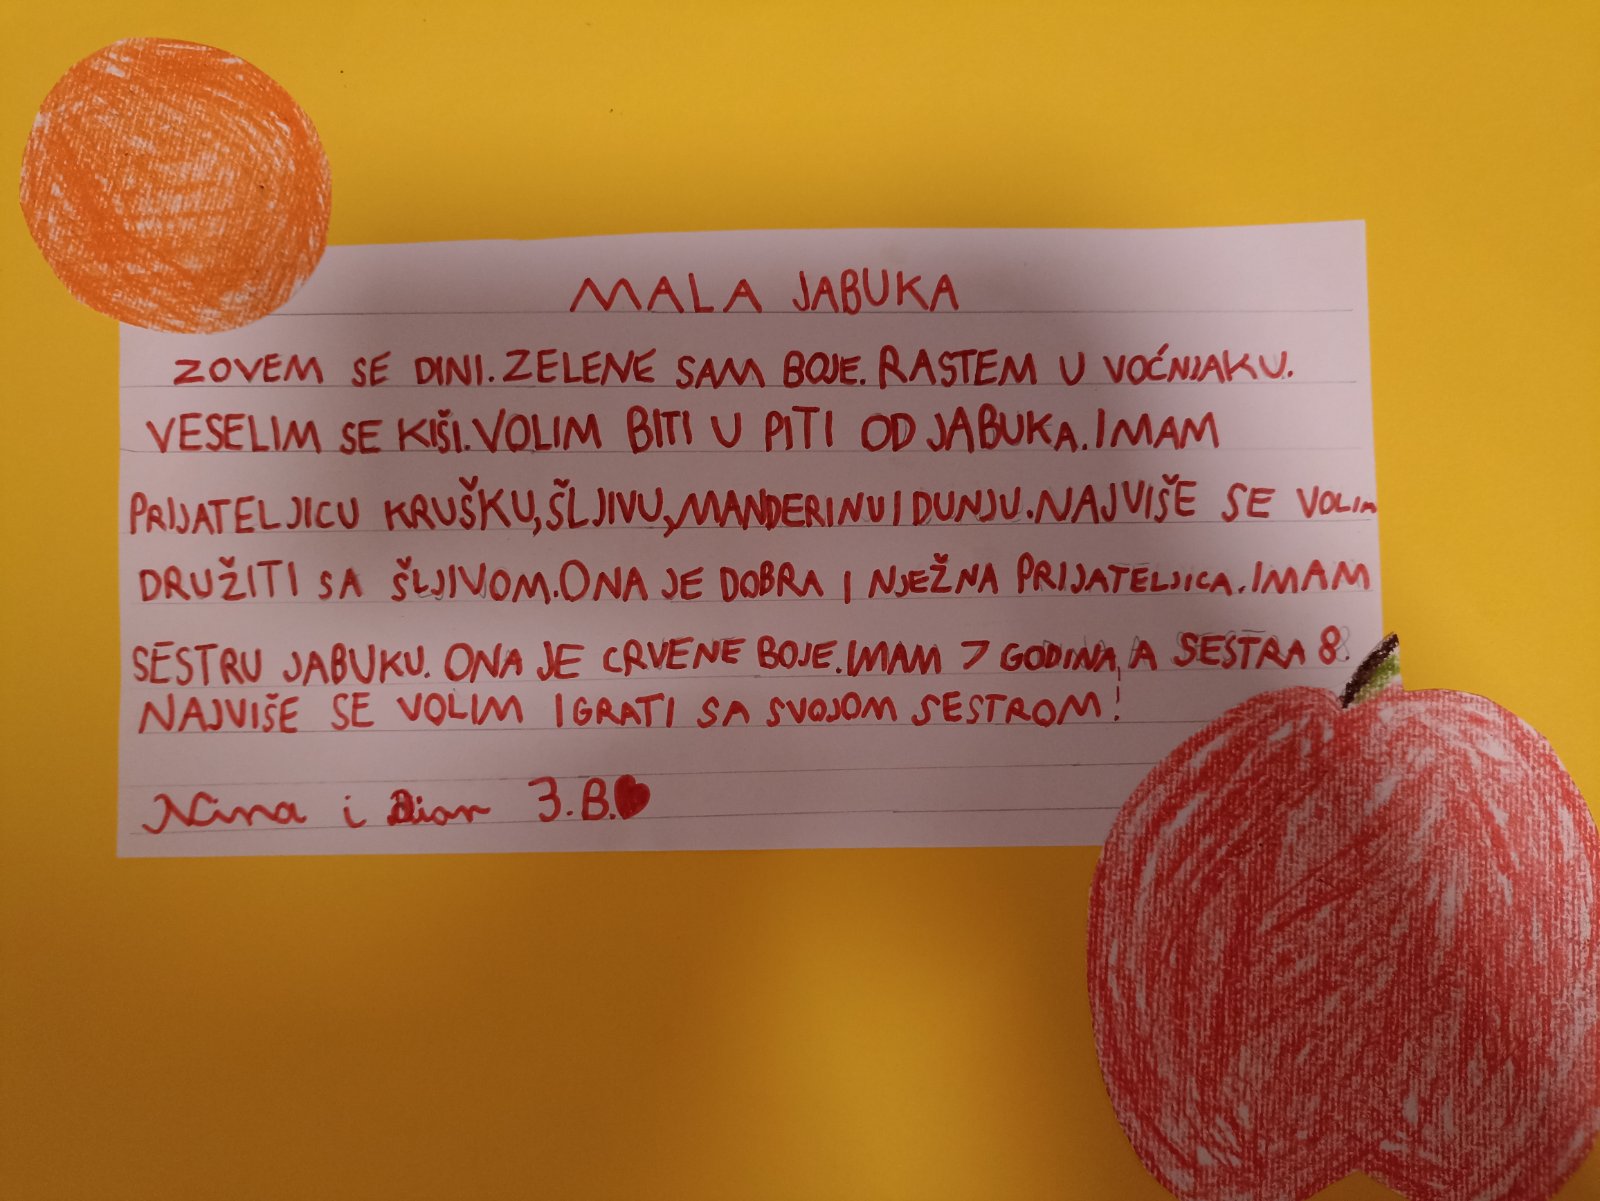 MALA JABUKA
ZOVEM SE DINI. ZELENE SAM BOJE. RASTEM U VOĆNJAKU.
VESELIM SE KIŠI. VOLIM BITI U PITI OD JABUKA. IMAM
PRIJATELJICU KRUŠKU, ŠLJIVU, MANDERINU I DUNJU. NAJVIŠE SE VOLIM
DRUŽITI SA ŠLJIVOM. ONA JE DOBRA I NJEŽNA PRIJATELJICA. IMAM
SESTRU JABUKU. ONA JE CRVENE BOJE. IMAM 7 GODINA, A SESTRA 8.
NAJVIŠE SE VOLIM IGRATI SA SVOJOM SESTROM!
Nina i Dion 3.B.